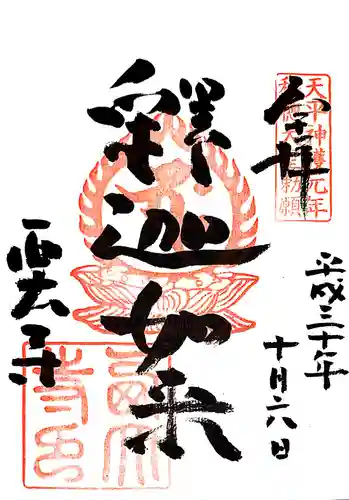 奉拝
天平神護元年
称徳天皇勅願
平成三十年
十月六日
釋迦如来
西大寺